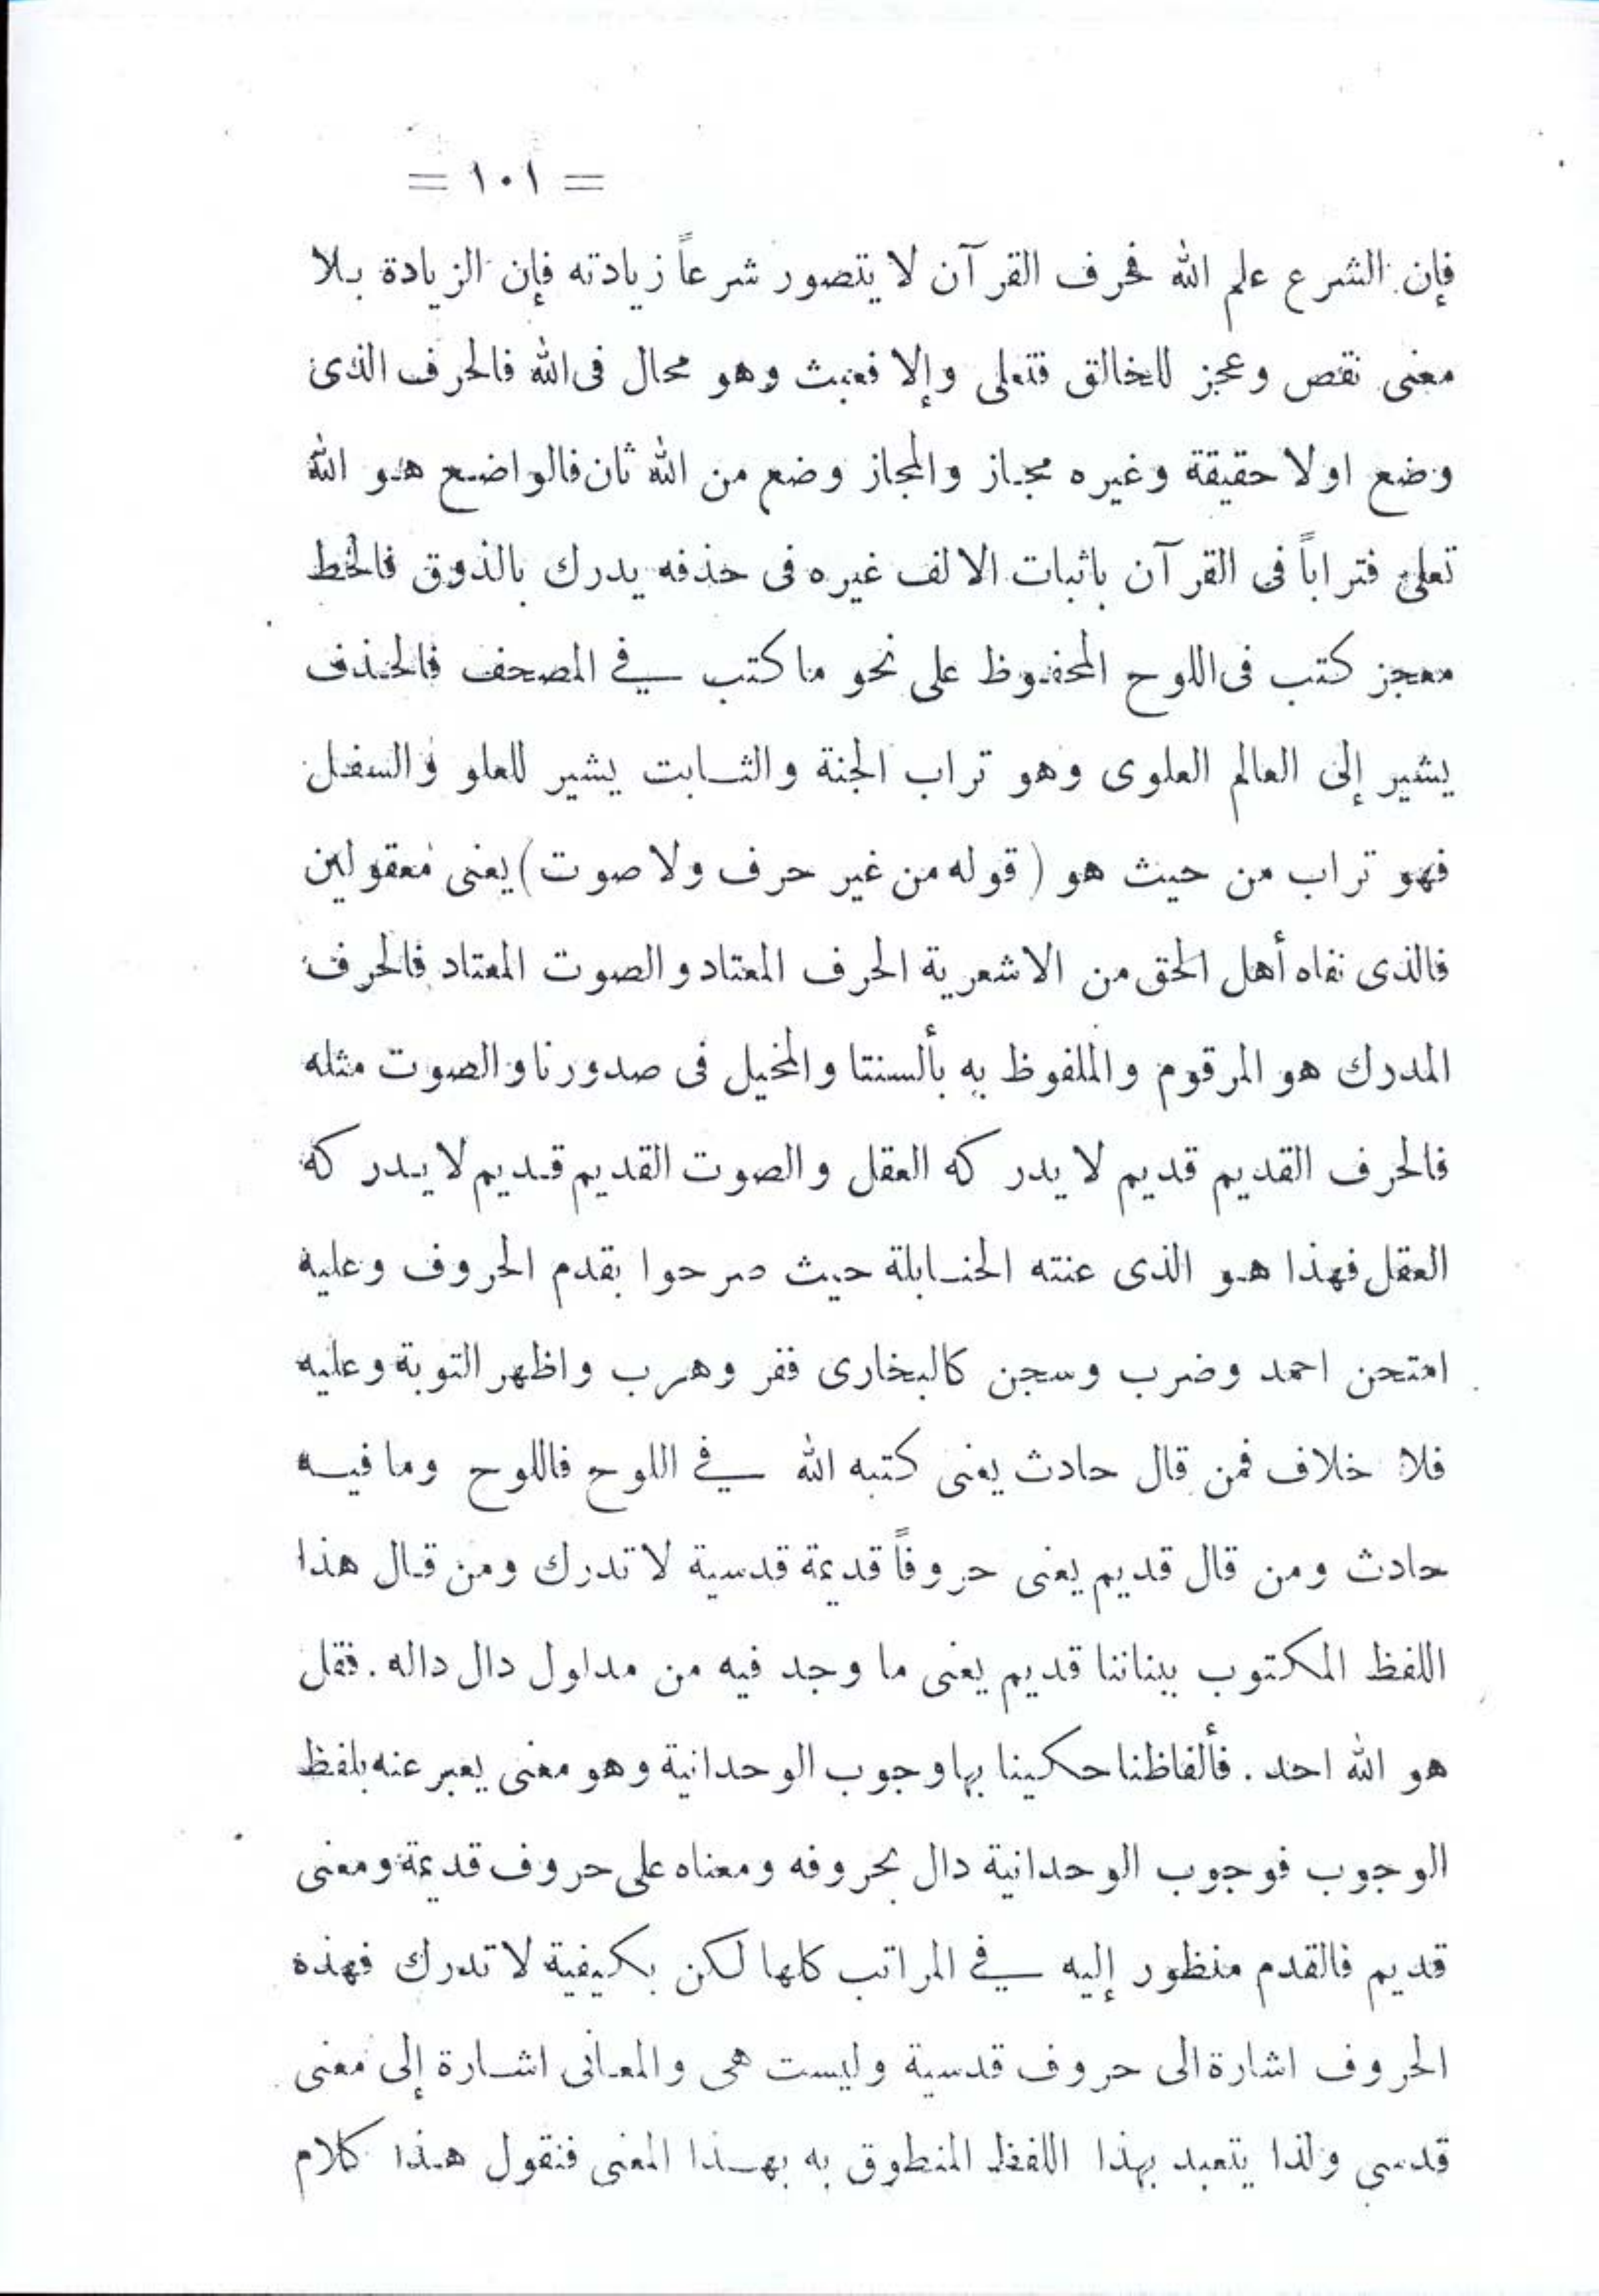 = ١٠١ =
فإن الشرع علم الله فحرف القرآن لا يتصور شرعاً زيادته فإن الزيادة بلا
معنى نقص وعجز للخالق فتعلى وإلا فعبث وهو محال فى الله فالحرف الذى
وضع اولا حقيقة وغيره مجاز والمجاز وضع من الله ثان فالواضع هو الله
تعلى فتراباً فى القرآن باثبات الالف غيره فى حذفه يدرك بالذوق فالخط
معجز كتب فى اللوح المحفوظ على نحو ما كتب في المصحف فالحذف
يشير إلى العالم العلوى وهو تراب الجنة والثابت يشير للعلو والسفل
فهو تراب من حيث هو (قوله من غير حرف ولا صوت) يعنى معقولين
فالذى نفاه أهل الحق من الاشعرية الحرف المعتاد والصوت المعتاد فالحرف
المدرك هو المرقوم والملفوظ به بألسنتا والمخيل فى صدورنا والصوت مثله
فالحرف القديم قديم لا يدركه العقل والصوت القديم قديم لا يدركه
العقل فهذا هو الذى عنته الحنابلة حيث صرحوا بقدم الحروف وعليه
امتحن احمد وضرب وسجن كالبخارى ففر وهرب واظهر التوبة وعليه
فلا خلاف فمن قال حادث يعنى كتبه الله في اللوح فاللوح وما فيه
حادث ومن قال قديم يعنى حروفاً قديمة قدسية لا تدرك ومن قال هذا
اللفظ المكتوب ببناننا قديم يعنى ما وجد فيه من مدلول دال داله . فقل
هو الله احد . فألفاظنا حكينا بها وجوب الوحدانية وهو معنى يعبر عنه بلفظ
الوجوب فوجوب الوحدانية دال بحروفه ومعناه على حروف قديمة ومعنى
قديم فالقدم منظور إليه في المراتب كلها لكن بكيفية لا تدرك فهذه
الحروف اشارة الى حروف قدسية وليست هى والمعانى اشارة إلى معنى
قدسي ولذا يتعبد بهذا اللفظ المنطوق به بهذا المعنى فنقول هذا كلام